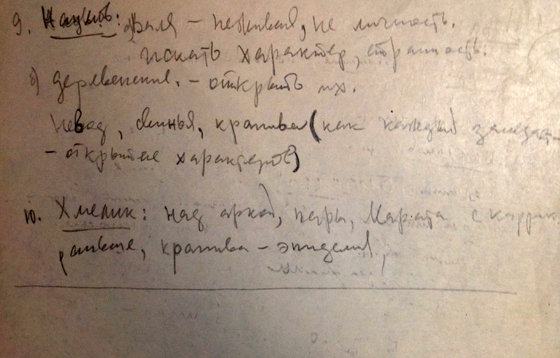 9. Наумов: Валя - неживая, не личность.
искать характер, странность.
б) деревенские. - открыть их.
Невод, свинья, крапива (как каждый
- открытие характеров)
10. Хмелик: над аркой, пары, Марата с
раньше, крапива - эпиделия,